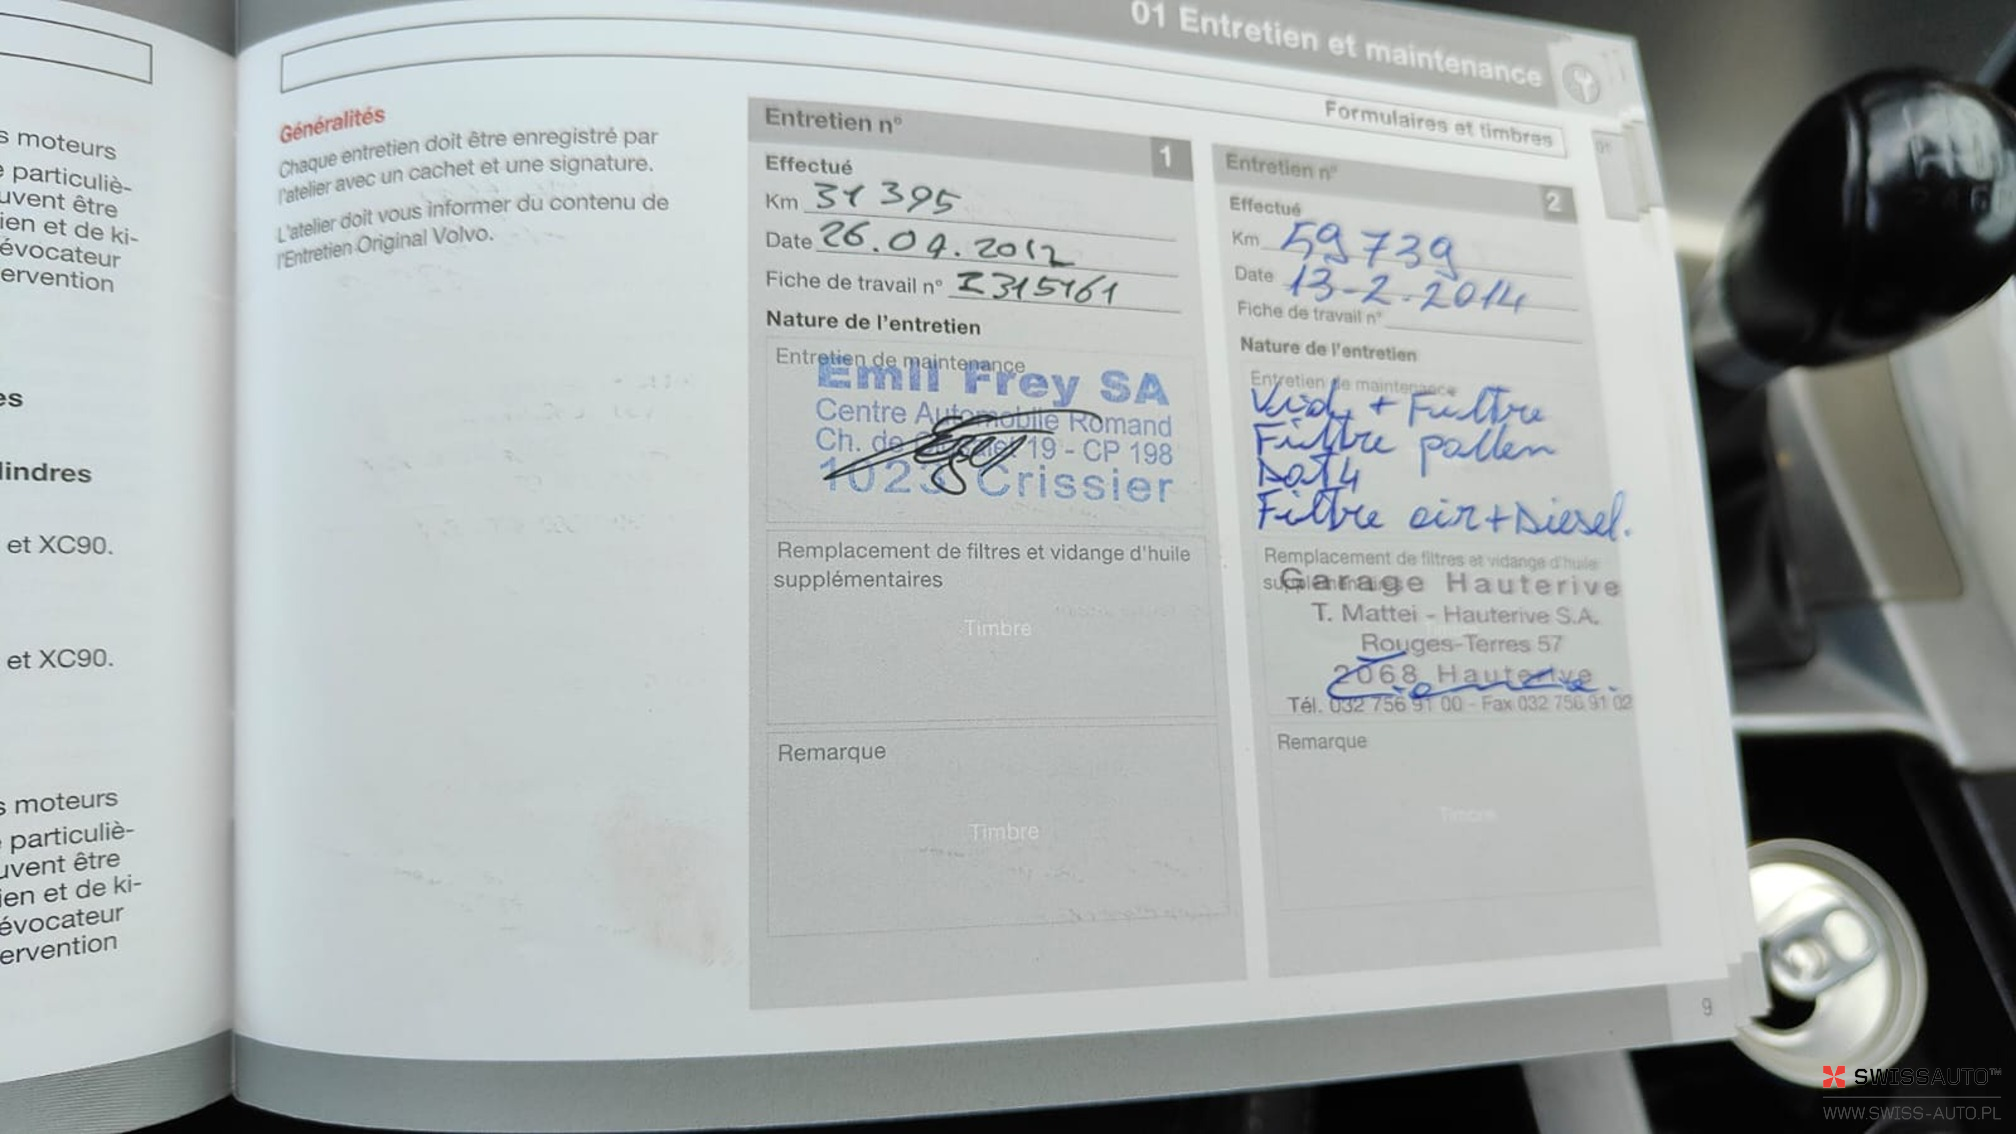 s moteurs
particuliè-
uvent être
ien et de ki-
évocateur
ervention
es
lindres
et XC90.
et XC90.
s moteurs
particuliè-
uvent être
ien et de ki-
évocateur
ervention
01 Entretien et maintenance
Formulaires et timbres
01
Généralités
Chaque entretien doit être enregistré par
l'atelier avec un cachet et une signature.
L'atelier doit vous informer du contenu de
l'Entretien Original Volvo.
Entretien n° 1
Effectué
Km 31 395
Date 26.04.2012
Fiche de travail n° I315161
Nature de l'entretien
Entretien de maintenance
Emil Frey SA
Centre Automobile Romand
Ch. de 19 - CP 198
1023 Crissier
Remplacement de filtres et vidange d'huile
supplémentaires
Timbre
Remarque
Timbre
Entretien n° 2
Effectué
Km 59739
Date 13-2.2014
Fiche de travail n°
Nature de l'entretien
Entretien de maintenance
Vid, + Filtre
Filtre pollen
Dot4
Filtre air + Diesel.
Remplacement de filtres et vidange d'huile
supplémentaires
Garage Hauterive
T. Mattei - Hauterive S.A.
Rouges-Terres 57
2068 Hauterive
Tél. 032 756 91 00 - Fax 032 756 91 02
Remarque
Timbre
9
SWISSAUTO™
WWW.SWISS-AUTO.PL